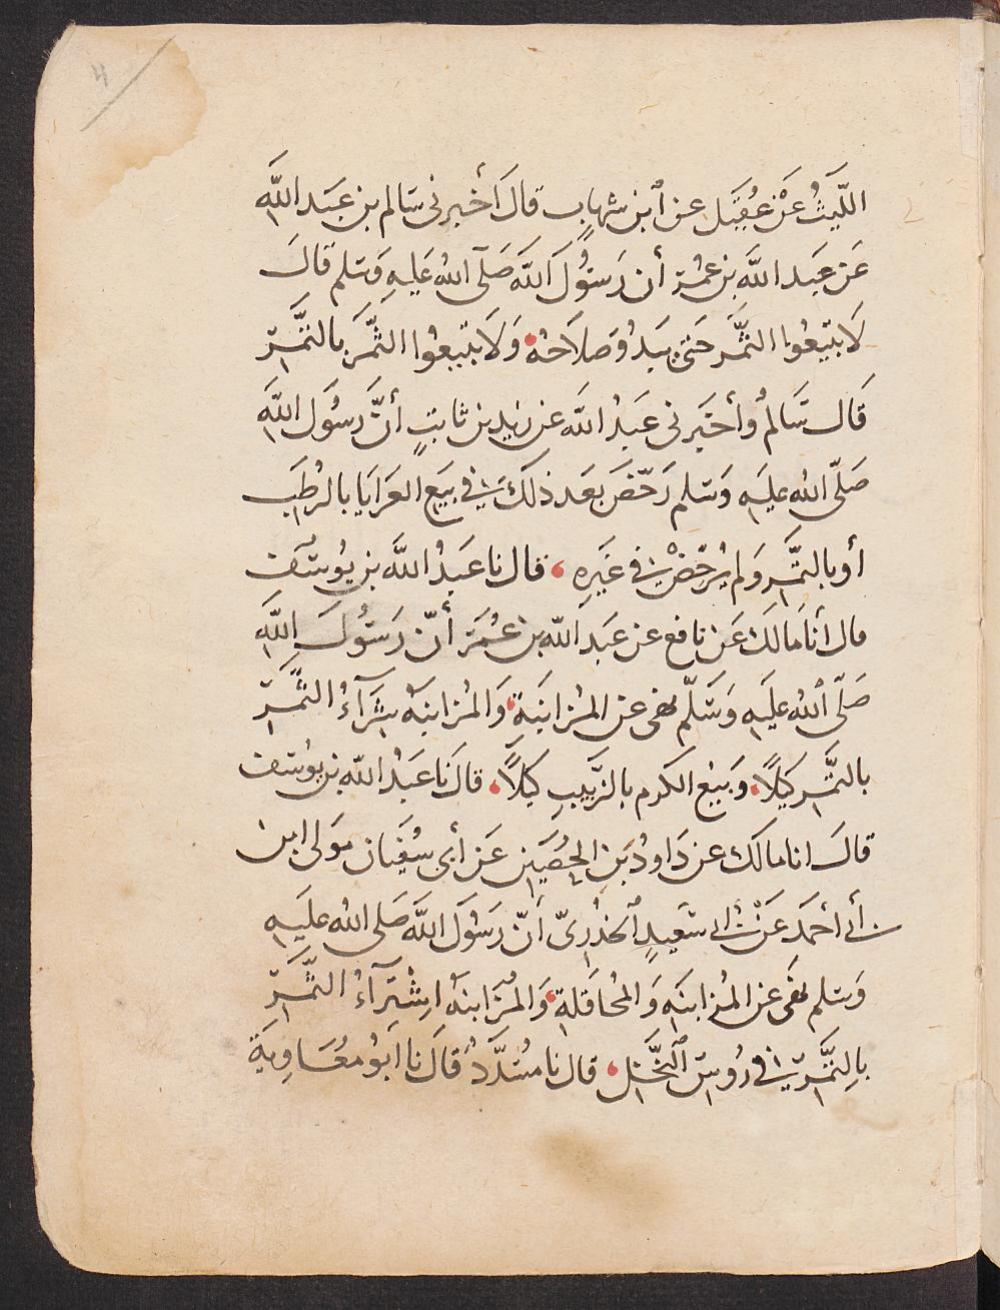 4
اللَّيثُ عَنْ عُقَيَل عن ٱبن شهابٍ قالَ أخبرنى سَالم بن عَبَد اللَّهِ
عَن عَبَد اللَّه بن عمُرَ أن رَسُولَ اللَّه صَلّى اللهُ عَليهِ وَسَلم قالَ
لَا تبَيعُوا الثَّمَر حَتى يَبَدُوَ صَلاَحهُ وَلَا تَبيعُوا الثَّمَرَ بالتَّمْرِ
قَال سَالمُ وأخبَرنى عَبَدُ اللَّه عن زيد بن ثابتٍ أنَّ رَسُول اللَّهِ
صَلّى اللهُ عليَهِ وَسَلم رَخّصَ بَعَد ذلكَ فى بَيَع العَرَايَا بالرُطَبِ
أو بالتَّمْرِ وَلم يُرَخِّصْ فى غَيَرِهِ، قال نا عَبَدُ اللَّه بن يُوسُفَ
قال أنَا مَالكَ عَن نافع عن عَبَد اللّه بن عُمَرَ أنّ رَسُولَ اللَّهِ
صَلّى ٱللهُ عليَهِ وَسَلّم نهى عن المُزابَنَةِ وَالمُزابنَهُ شرَآءُ الثَّمَرِ
بالتَّمْرِ كَيلًا، وَبَيْعُ الكرم بالزَّبيبِ كيَلًا، قالَ نَا عَبَدُ اللّه بن يوُسَف
قالَ انا مالكَ عن دَاودُ بَنِ الحِصُيَنِ عَن أبى سفُيَان مَولى ابن
أبى أحمَد عَنْ أبى سَعِيدٍ ٱلخدُرِىّ أنّ رَسُولَ اللَّه صَلى اللهُ عليَهِ
وَسَلم نَهَى عن المُزابنَهِ وَالمُحاقَلةِ، وَالمُزَابنَهُ اشْتِرَآءُ الثَّمَرِ
بِالتَّمْرِ فى رُوسِ ٱلنَّخْلِ، قال نا مُسَدَّدُ قالَ نا ابَوُ معُاوِيَةَ